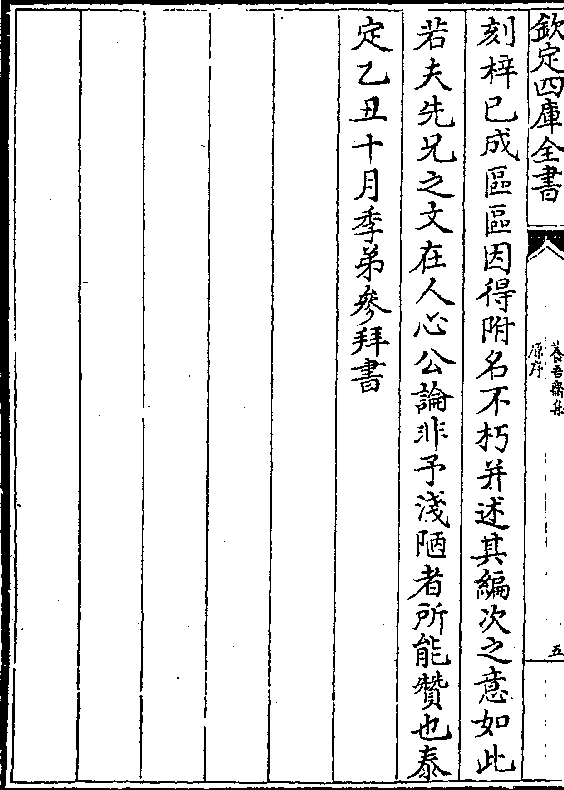 欽定四庫全書
養吾齋集
原序
五
刻梓已成區區因得附名不朽并述其編次之意如此
若夫先兄之文在人心公論非予淺陋者所能贊也泰
定乙丑十月季弟參拜書